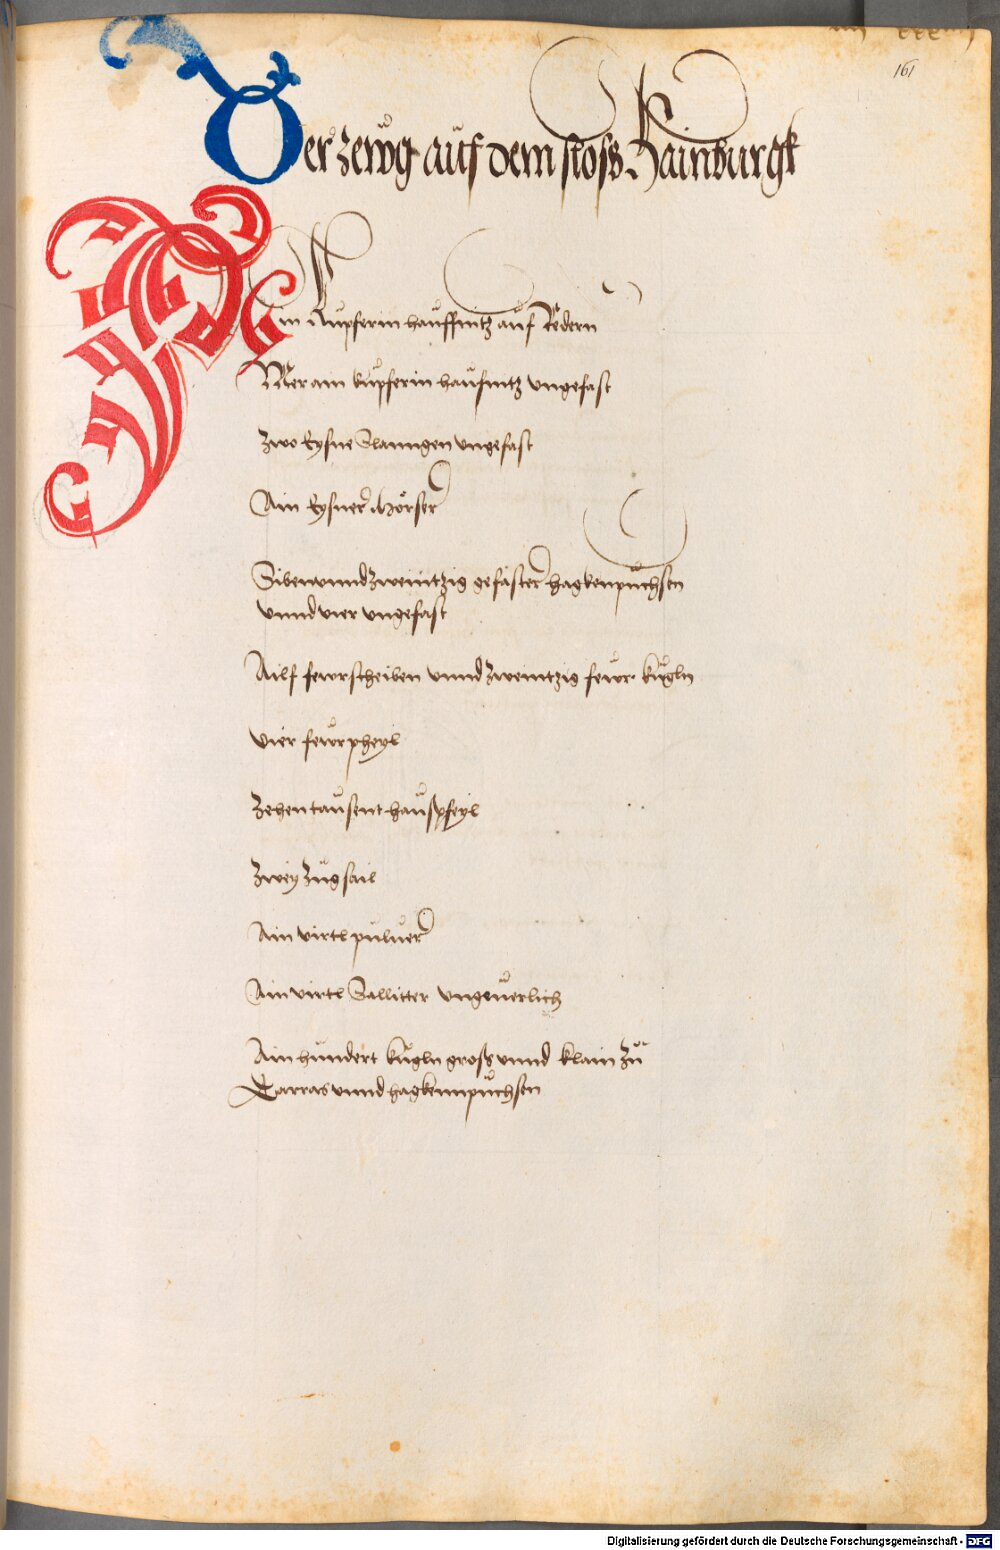 161
Der zewg auf dem sloss Hainburgk
Ain kupferin hauffnitz auf Redern
Mer ain kupferin haufnitz ungefast
Zwo Eysne Slanngen ungefast
Ain Eysner Morser
Sibenunndzweintzig gefaster hagkenpuchsen
unnd vier ungefast
Ailf fewrscheiben unnd zweintzig fewr kugln
vier fewrpheyl
Zehentausent hauspfeyl
Zwey Zugsail
Ain virtl pulver
Ain virtl Sallitter ungeverlich
Ain hundert kugln gross unnd klain zu
Tarras unnd hagkennpuchsen
Digitalisierung gefördert durch die Deutsche Forschungsgemeinschaft - DFG